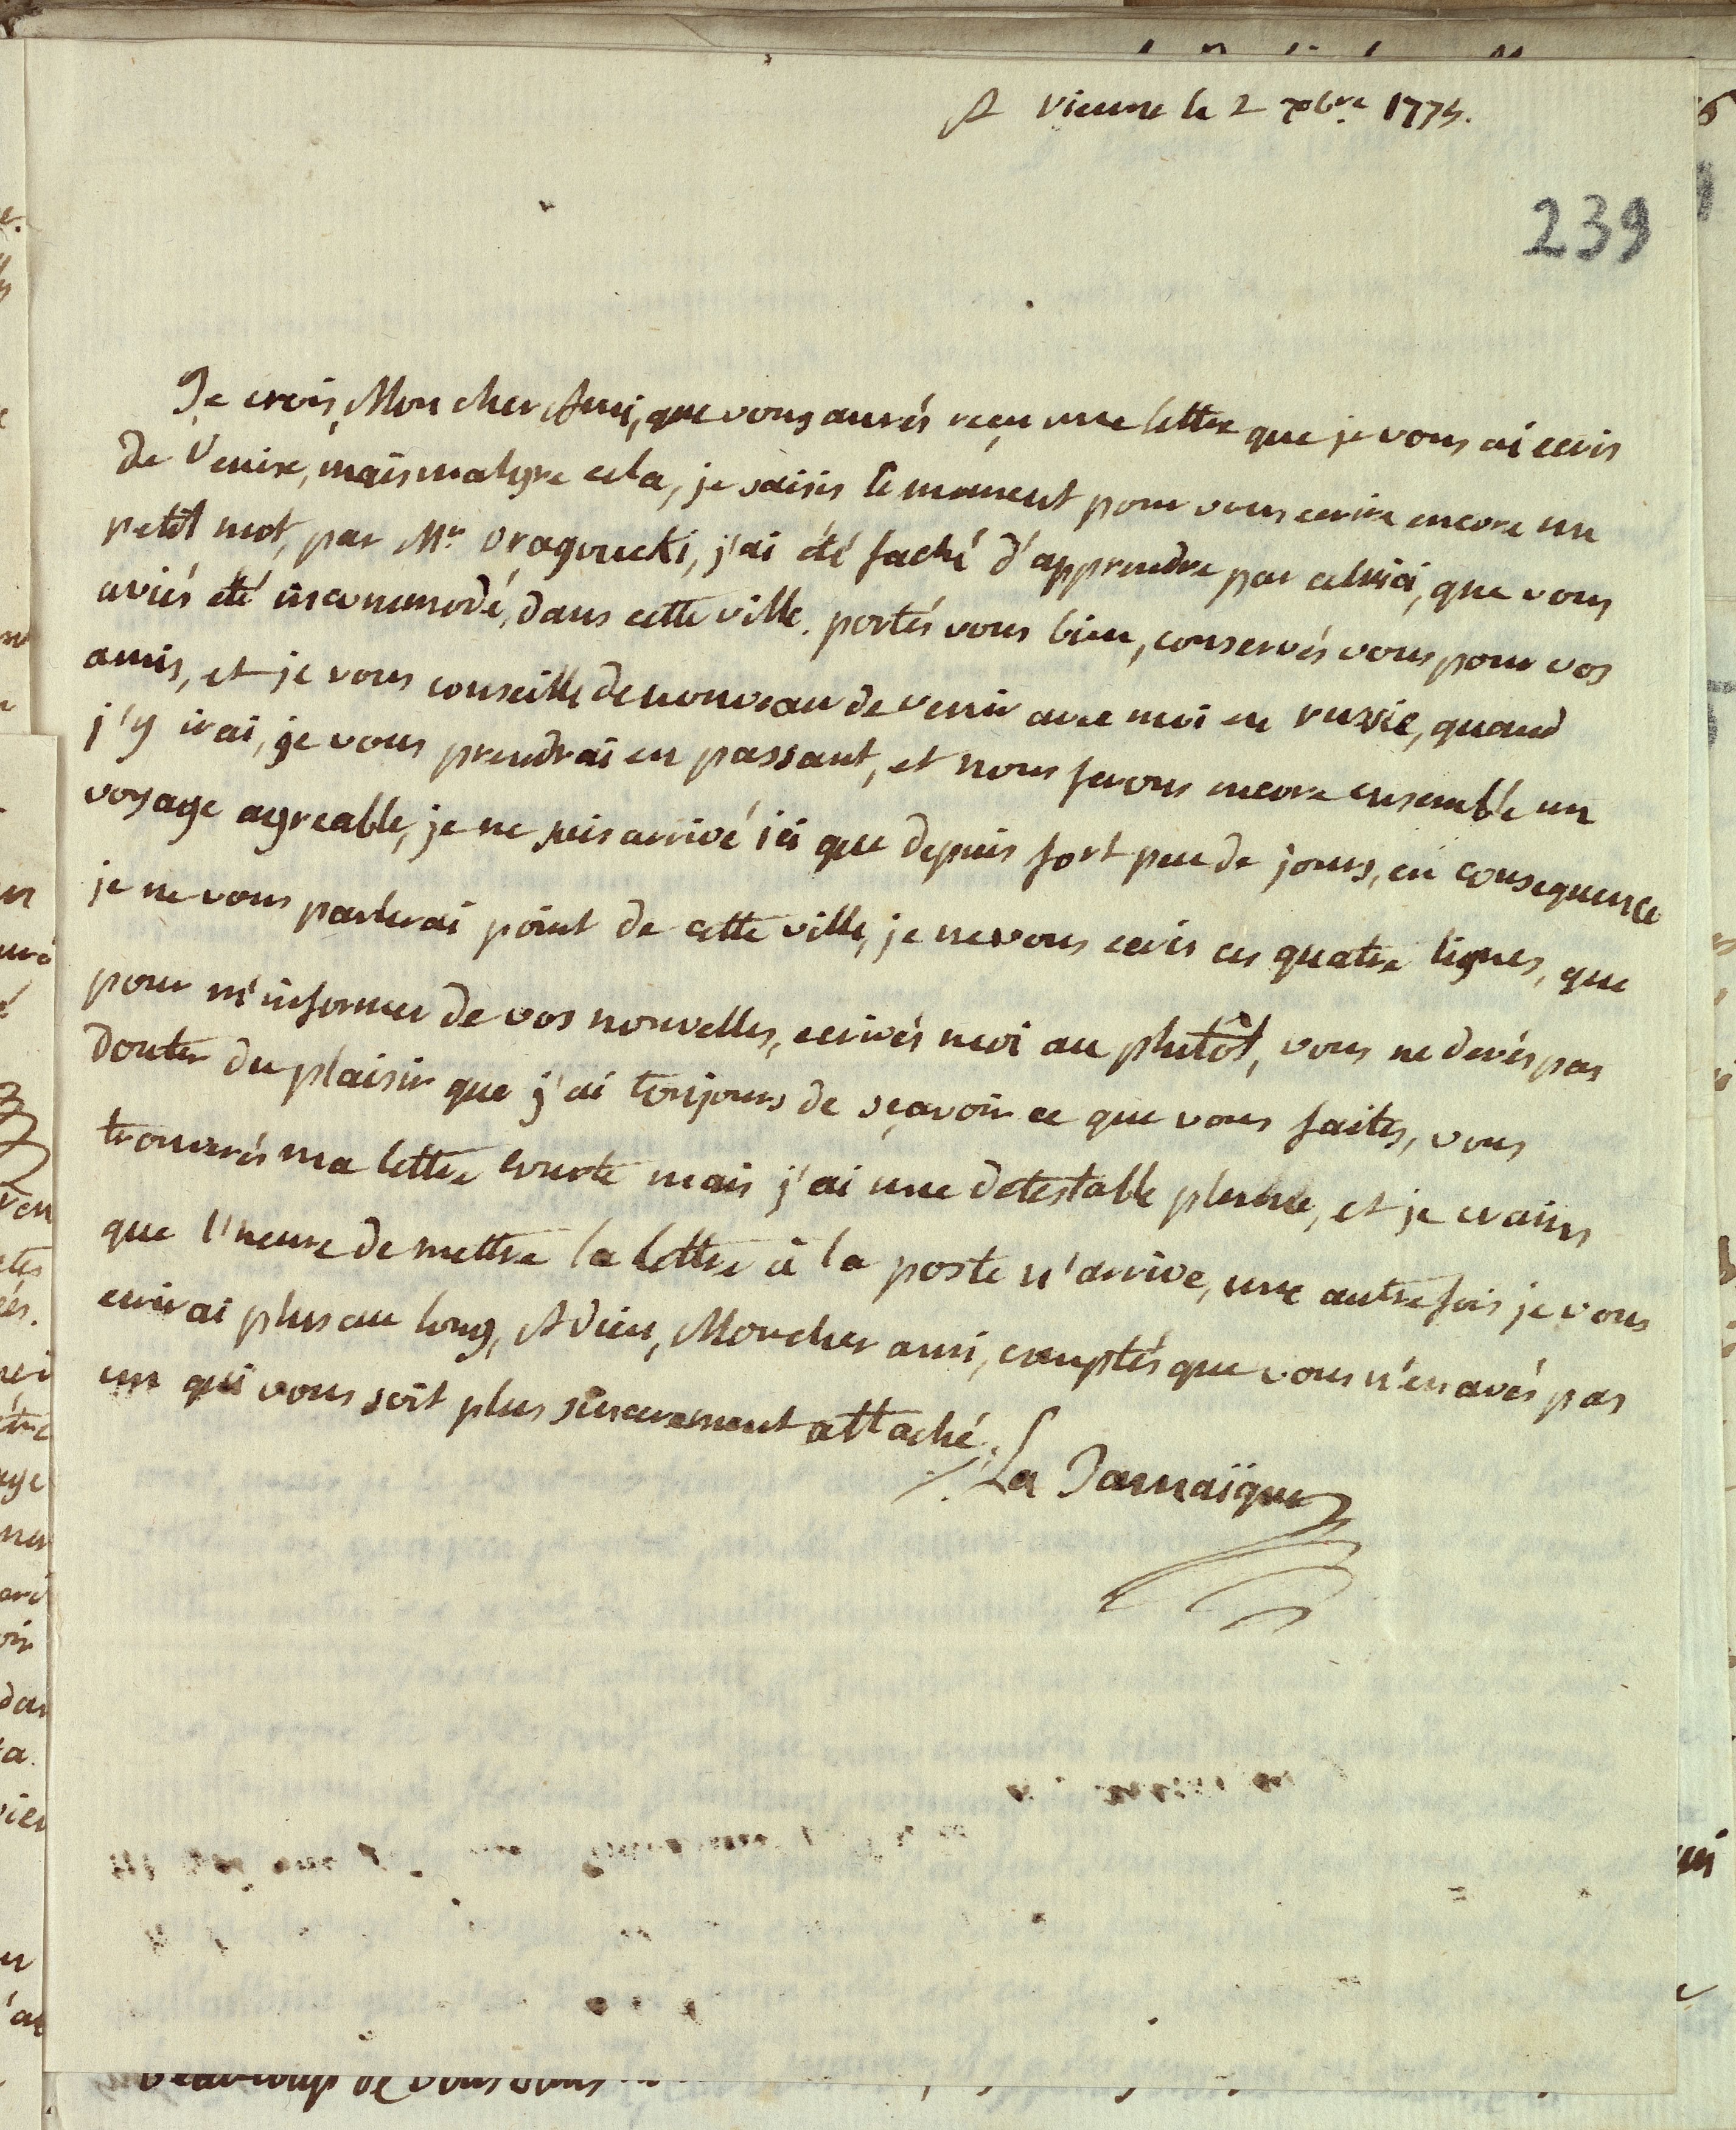 A Vienne le 2 xbre 1774.
239
Je crois, Mon cher Ami, que vous aurés reçu une lettre que je vous ai ecris
de Venise, mais malgre cela, je saisis le moment pour vous ecrire encore un
petit mot, par Mr Dragoucki, j'ai été faché d'apprendre par celuici, que vous
aviés eté incommodé, dans cette ville. portés vous bien, conservés vous pour vos
amis, et je vous conseille de nouveau de venir avec moi en russie, quand
j'y irai, je vous prendrai en passant, et nous ferons encore ensemble un
voyage agreable, je ne suis arrivé ici que depuis fort peu de jours, en consequence
je ne vous parlerai point de cette ville, je ne vous ecris ces quatre lignes, que
pour m'informer de vos nouvelles, ecrivés moi au plutôt, vous ne devés pas
douter du plaisir que j'ai toujours de sçavoir ce que vous faites, vous
trouverés ma lettre courte mais j'ai une detestable plume, et je crains
que l'heure de mettre la lettre à la poste n'arrive, une autre fois je vous
ecrirai plus au long, Adieu, Mon cher ami, comptés que vous n'en avés pas
un qui vous soit plus sincerement attaché.
La Jamaïque
beaucoup de vous dans